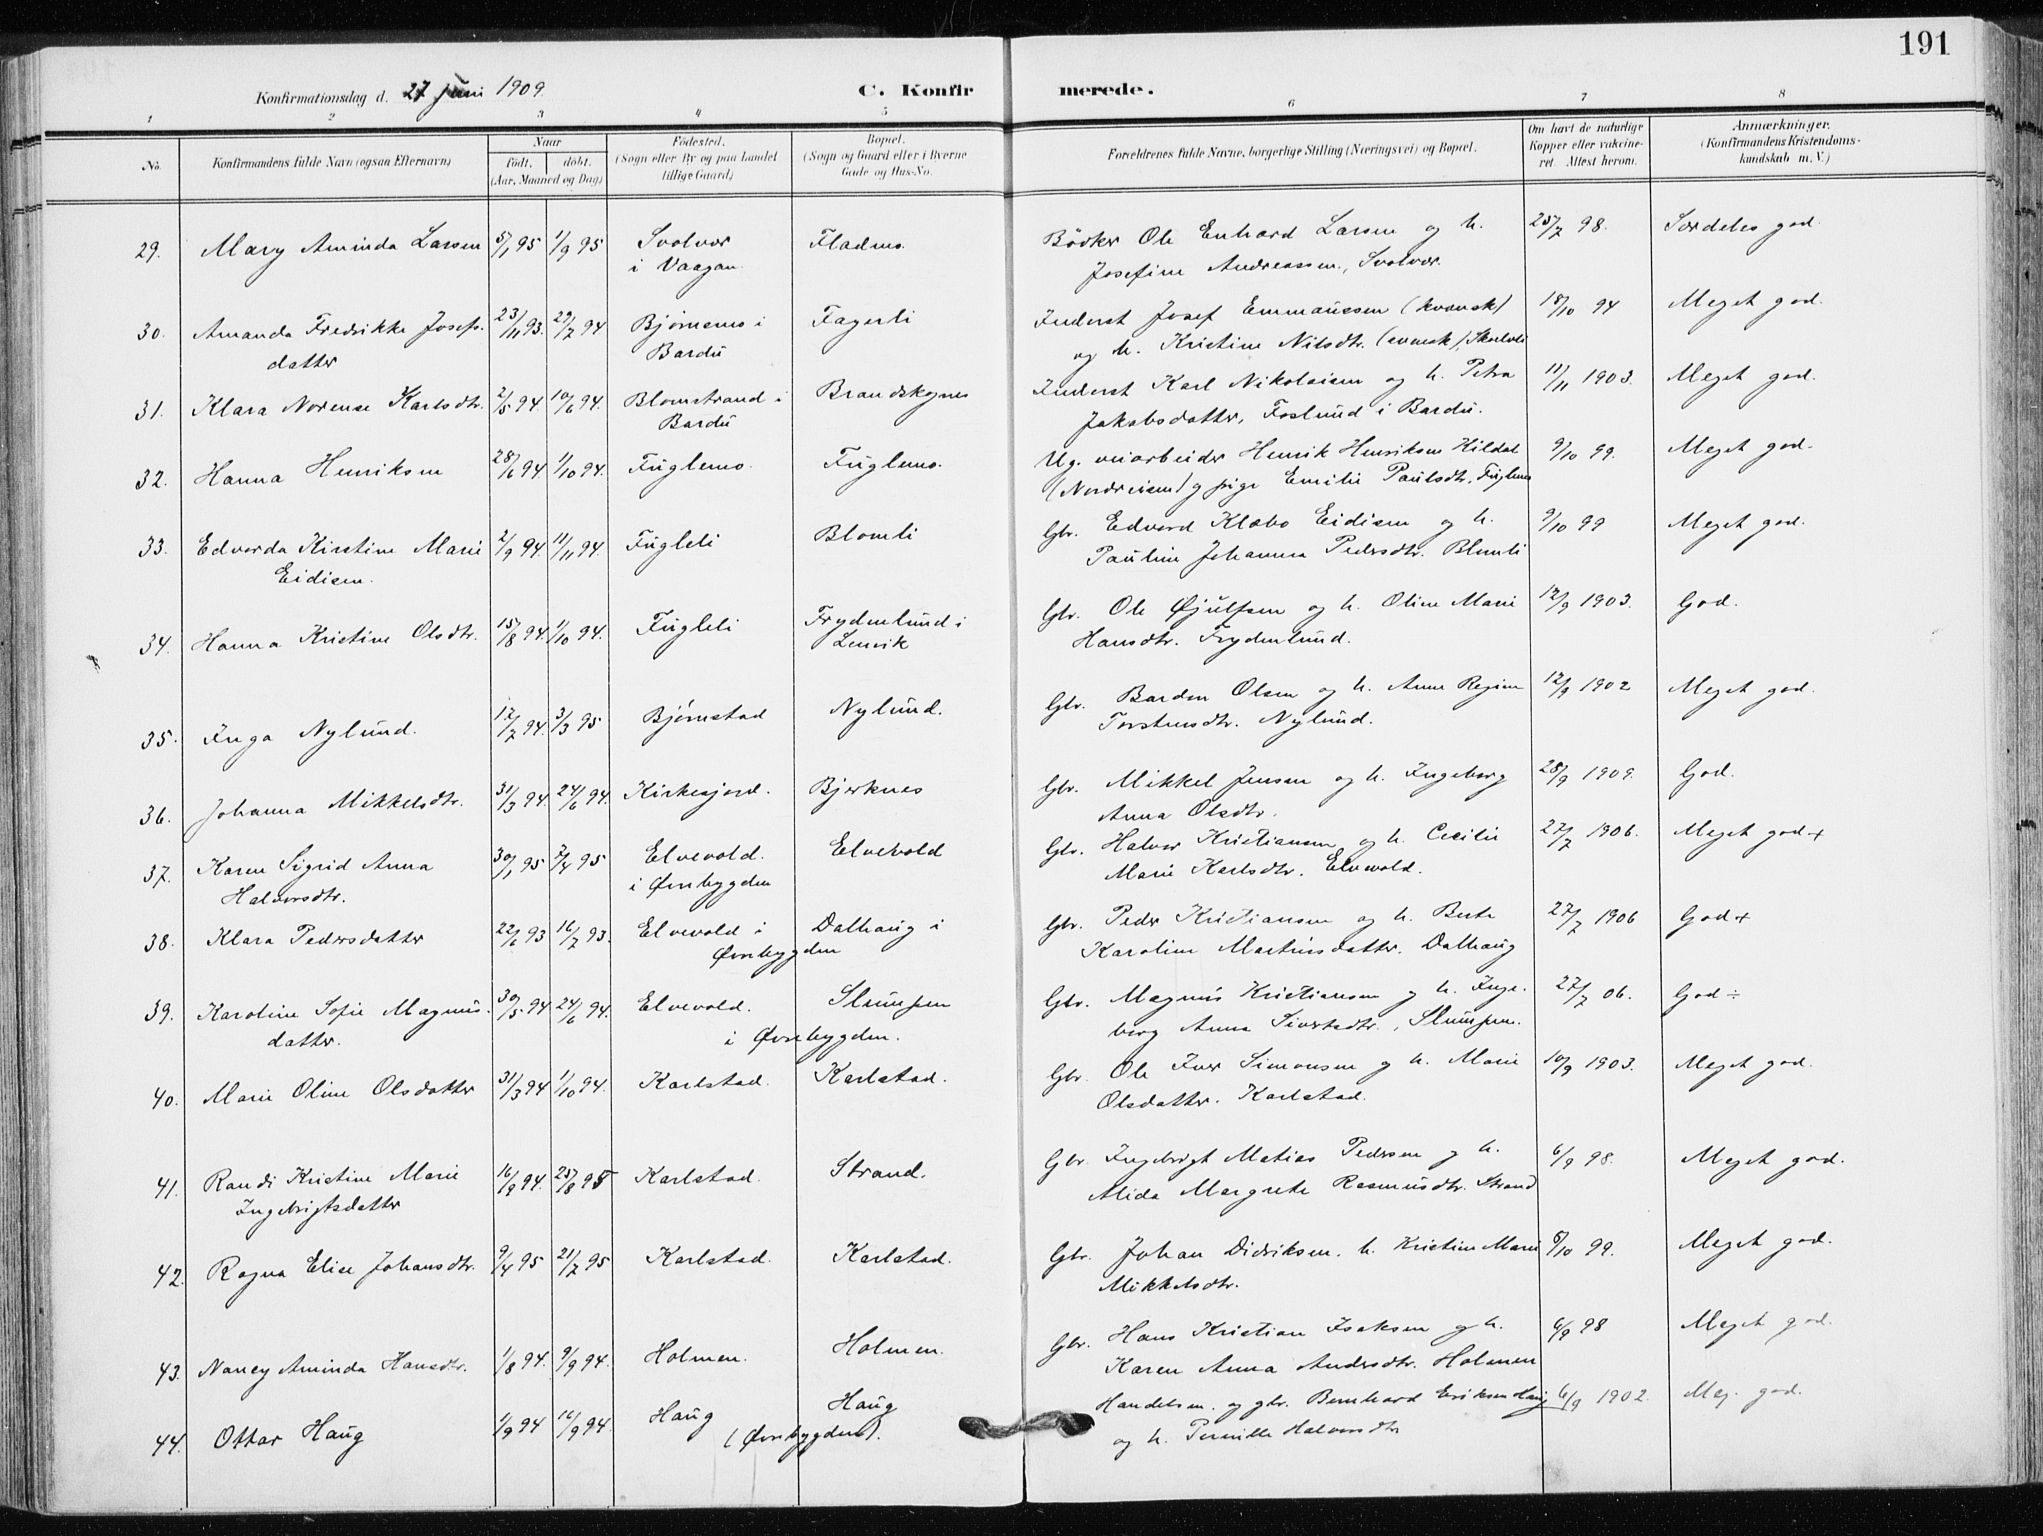 191
Konfirmationsdag d. 27 juni 1909
C. Konfirmerede.
1 2 3 4 5 6 7 8
No.
Konfirmandens fulde Navn (ogsaa Efternavn)
Naar
født. døbt.
(Aar, Maaned og Dag)
Fødested.
(Sogn eller By og paa Landet
tillige Gaard)
Bopæl.
(Sogn og Gaard eller i Byerne
Gade og Hus-No.
Forældrenes fulde Navne, borgerlige Stilling (Næringsvei) og Bopæl.
Om havt de naturlige
Kopper eller vakcine-
ret. Attest herom.
Anmærkninger.
(Konfirmandens Kristendoms-
kundskab m. V.)
29. Mary Aminda Larsen 5/1 95 1/9 95 Svolvær Fladmo. Bödker Ole Enhard Larsen og h. 25/7 98. Særdeles god.
i Vaagan. Josefine Andreassen, Svolvær.
30. Amanda Fredrikke Josefs- 23/11 93. 29/7 94 Bjørnemo i Fagerli Inderst Josef Emmaussen (kvænsk) 18/10 94 Meget god.
datter Bardu og h. Kristine Nilsdtr. (svensk),
31. Klara Norense Karlsdtr. 2/5 94. 10/6 94. Blomstrand i Brandskognes Inderst Karl Nikolaisen og h. Petra 11/11 1903. Meget god.
Bardu Jakobsdatter, Foslund i Bardu.
32. Hanna Henriksen 28/6 94 1/10 94. Fuglemo. Fuglemo. Ug. veiarbeider Henrik Henriksen Hildal 9/10 99. Meget god.
(Nordreisen) og pige Emilie Paulsdtr, Fuglemo
33. Edvarda Kirstine Marie 2/9 94. 11/11 94. Fugleli Blomli Gbr. Edvard Klæbo Eidisen og h. 9/10 99 Meget god.
Eidisen. Pauline Johanna Pedersdtr. Blomli
34. Hanna Kristine Olsdtr. 15/8 94. 1/10 94. Fugleli Frydenlund i Gbr. Ole Øjulfsen og h. Oline Marie 12/9 1903. God.
Lenvik Hansdtr. Frydenlund.
35. Inga Nylund. 12/7 94. 3/3 95 Bjørnstad Nylund. Gbr. Bardon Olsen og h. Anne Regine 12/9 1902 Meget god.
Torstensdtr. Nylund.
36. Johanna Mikkelsdtr. 31/3 94. 24/6 94. Kirkesjord. Bjerknes Gbr. Mikkel Jensen og h. Ingeborg 28/9 1909. God.
Anna Olsdtr.
37. Karen Sigrid Anna 30/1 95 7/4 95 Elvevold. Elvevold Gbr. Halvor Kristiansen og h. Cecilie 27/7 1906. Meget god +
Halvorsdtr. i Øvrebygden Marie Karlsdtr. Elvevold.
38. Klara Pedersdatter 22/6 93 16/7 93. Elvevold i Dalhaug i Gbr. Peder Kristiansen og h. Berte 27/7 1906 God +
Øvrebygden Karoline Martinsdatter. Dalhaug
39. Karoline Sofie Magnus- 30/5 94 24/6 94. Elvevold. Slumpen Gbr. Magnus Kristiansen og h. Inge- 27/7 06. God ÷
datter. i Øvrebygden. borg Anna Sivertsdtr., Slumpen.
40. Marie Oline Olsdatter 31/3 94 1/10 94. Karlstad. Karlstad. Gbr. Ole Iver Simonsen og h. Marie 10/9 1903. Meget god.
Olsdatter. Karlstad.
41. Randi Kristine Marie 16/9 94. 25/8 95 Karlstad. Strand. Gbr. Ingebrigt Matias Pedersen og h. 6/9 98. Meget god.
Ingebrigtsdatter Alida Margrete Rasmusdtr. Strand
42. Ragna Elise Johansdtr. 9/4 95 21/7 95 Karlstad. Karlstad. Gbr. Johan Didriksen. h. Kristine Marie 8/10 99. Meget god.
Mikkelsdtr.
43. Nancy Aminda Hansdtr. 1/8 94. 9/9 94. Holmen. Holmen. Gbr. Hans Kristian Isaksen og h. 6/9 98 Meget god.
Karen Anna Andersdtr. Holmen
44. Ottar Haug 1/9 94 16/9 94 Haug Haug Handelsm. og gbr. Bernhard Eriksen Haug 6/9 1902. Meg. god.
(Øvrebygden). og h. Pernille Halvorsdtr